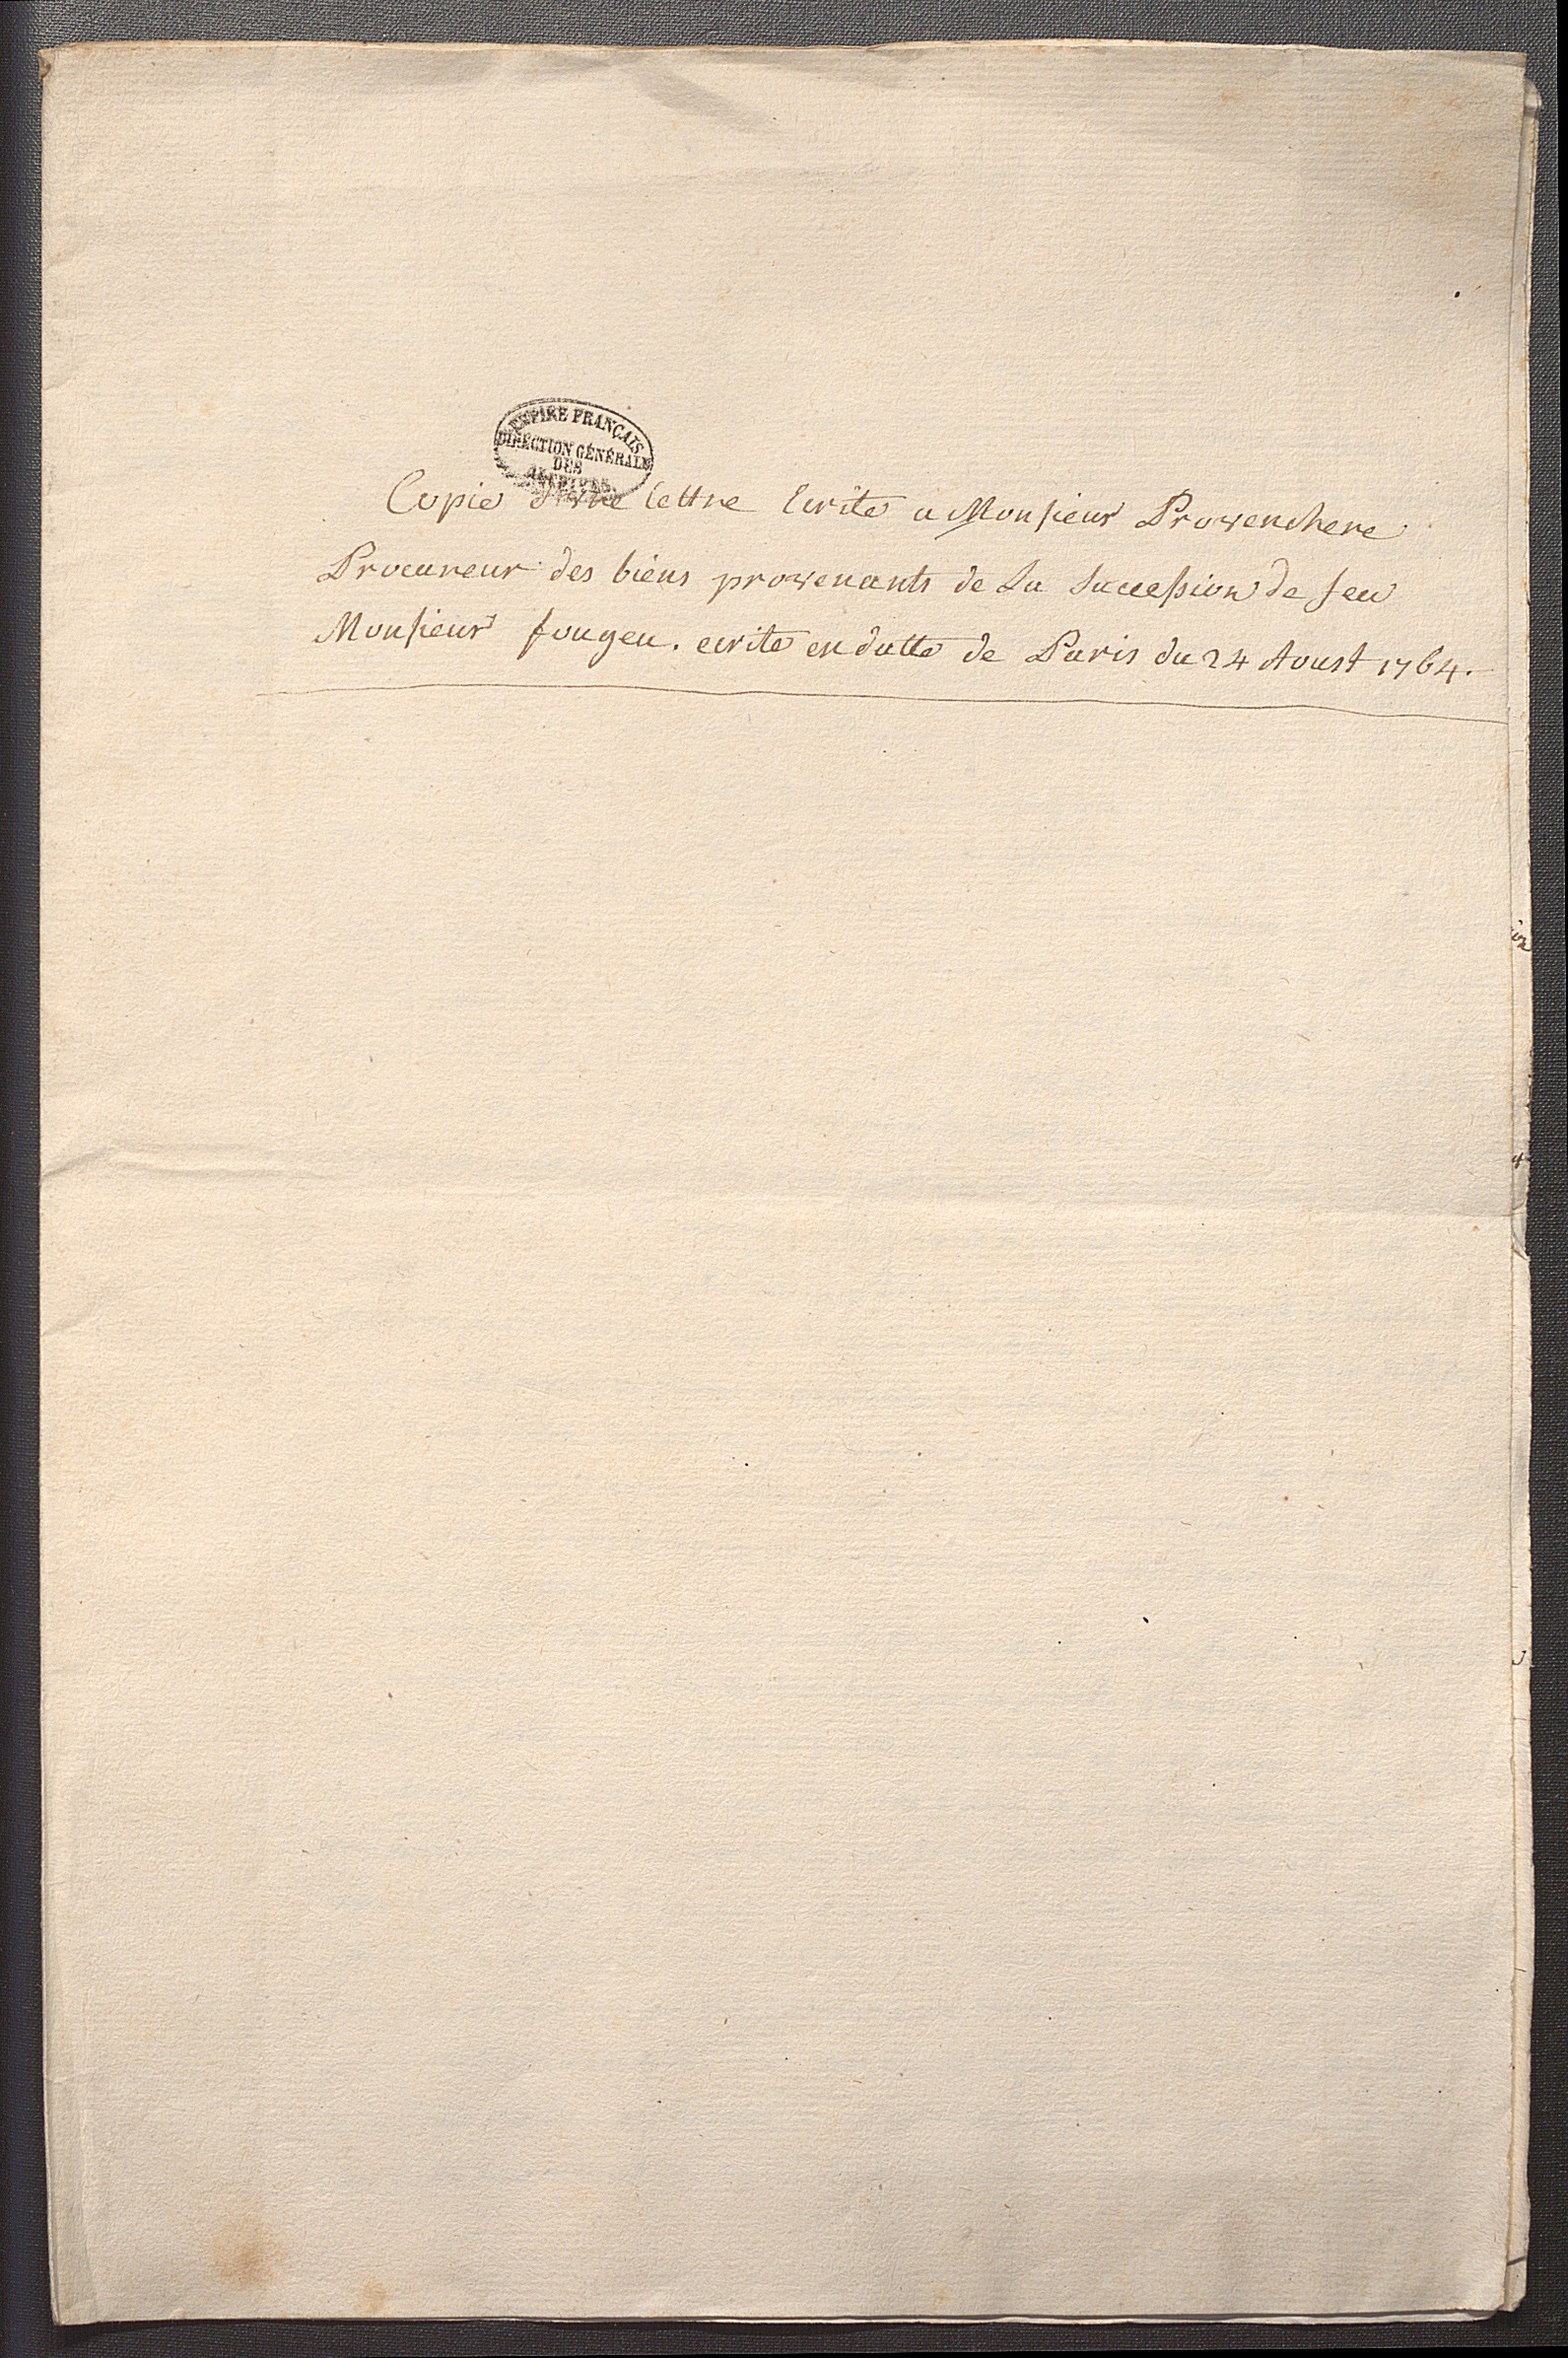 EMPIRE FRANÇAIS
DIRECTION GÉNÉRALE
DES
ARCHIVES
Copie d'une lettre Ecrite a Monsieur Provenchere
Procureur des biens provenants de La Succession de feu
Monsieur fougeu. ecrite en datte de Paris du 24 Aoust 1764.